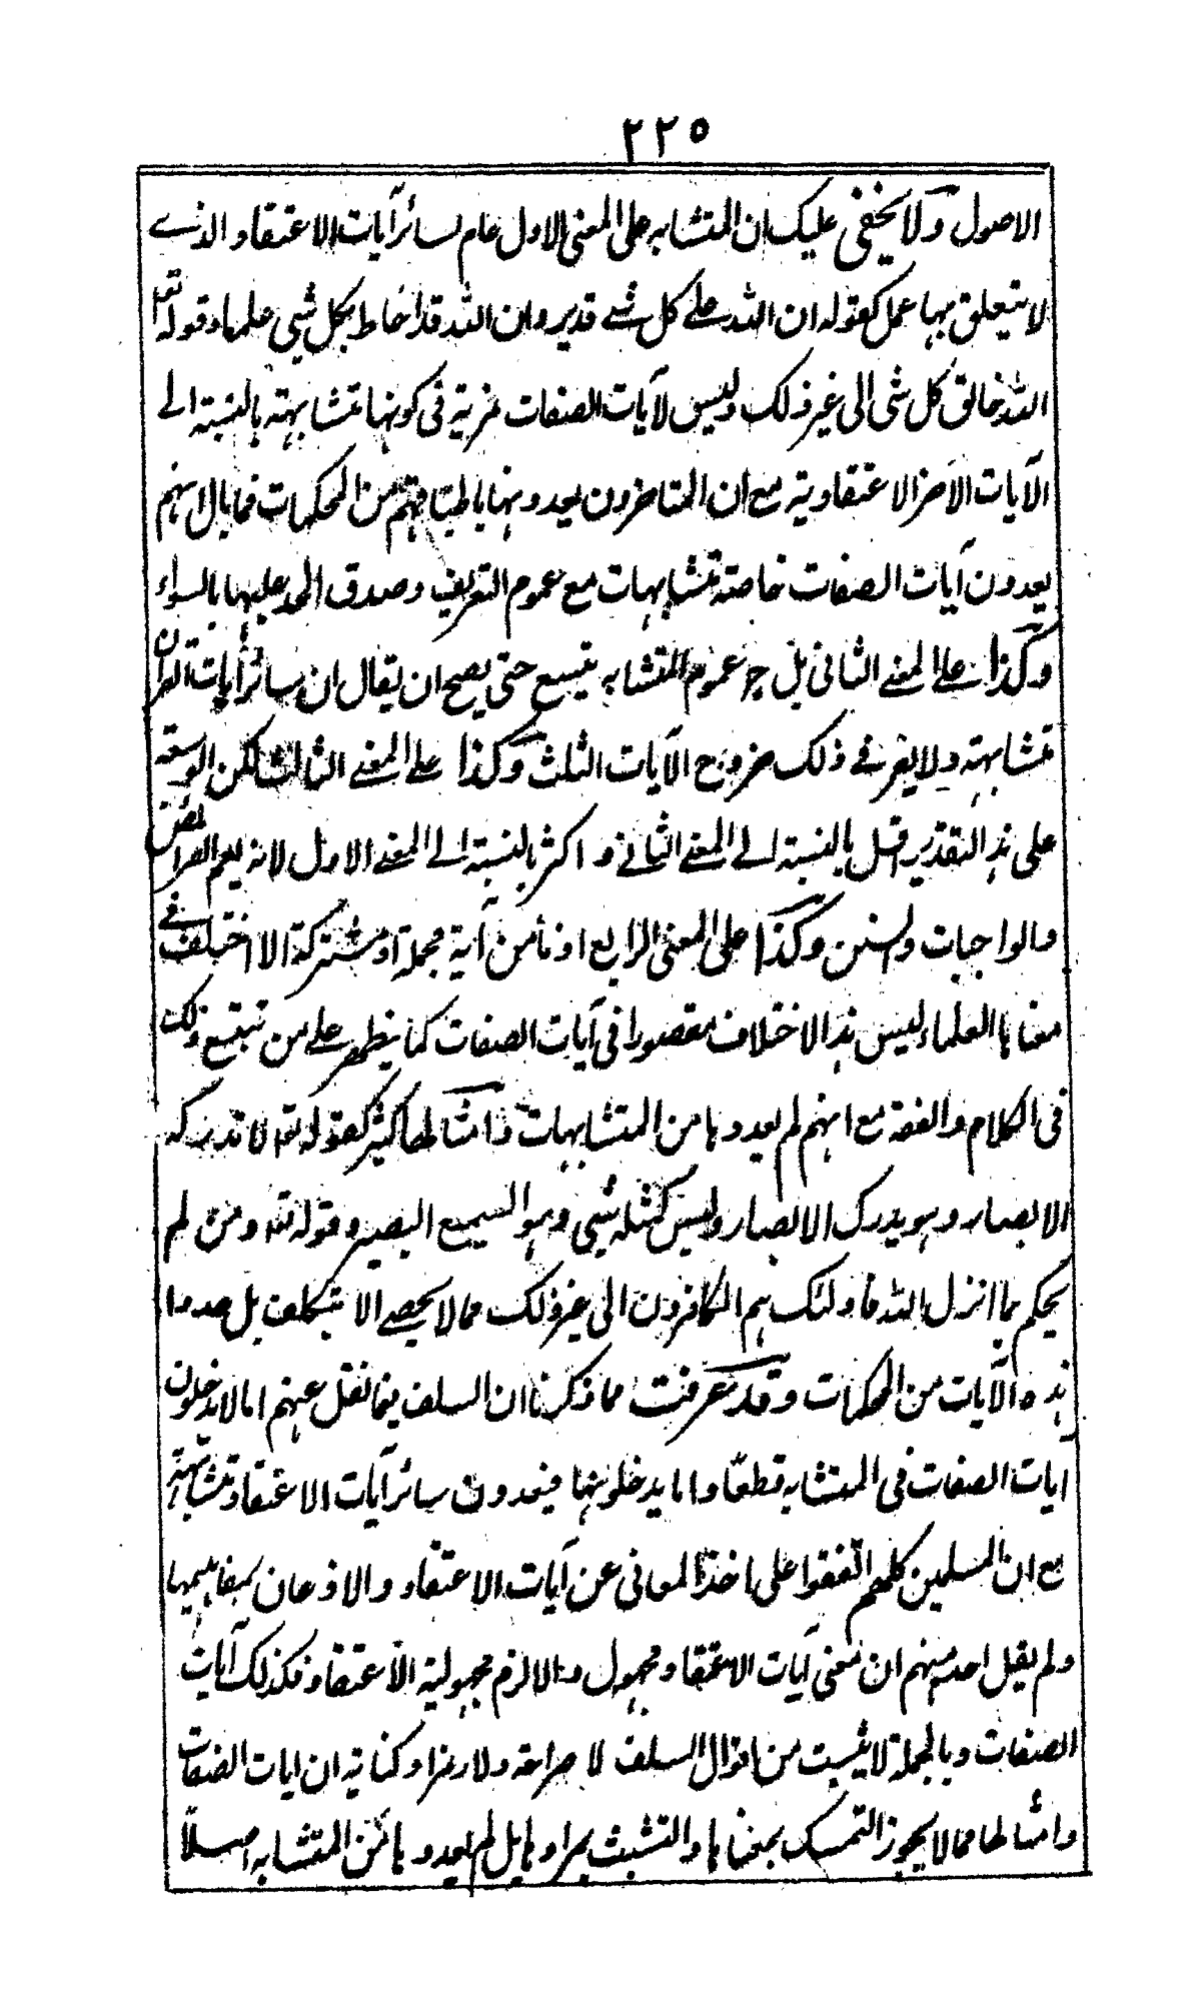 ٢٢٥
الاصول ولا يخفى عليك ان المتشابه على المعنى الاول عام لسائر آيات الاعتقاد الذے
لا يتعلق بها عمل كقوله ان الله علے كل شے قدير وان الله قد احاط بكل شی علما وقوله تعه
الله خالق كل شی الی غير ذلك وليس لآيات الصفات مزية فی كونها متشابهة بالنسبة الے
الآيات الاخر الاعتقادية مع ان المتاخرون يعدونها باطباقهم من المحكمات فما بال انهم
يعدون آيات الصفات خاصة متشابهات مع عموم التعريف وصدق الحد عليها بالسواء
وكذا علے المعنے الثانی بل عموم المتشابه يتسع حتی يصح ان يقال ان سائر آيات القرآن
متشابهة ولا يضر فے ذلك خروج الآيات الثلث وكذا علے المعنے الثالث لكن الوسعة
علی هذا التقدير اقل بالنسبة الے المعنے الثانے و اكثر بالنسبة الے المعنے الاول لانه يعم الفرائض
والواجبات والسنن وكذا علی المعنی الرابع اذ ما من آية مجملة او مشتركة الا اختلف فے
معناها العلماء ليس هذا الاختلاف مقصورا فی آيات الصفات كما يظهر علے من تتبع ذلك
فی الكلام والفقه مع انهم لم يعدوها من المتشابهات وامثالها كثير كقوله تعه لا تدركه
الابصار وهو يدرك الابصار وليس كمثله شی وهو السميع البصير وقوله تعه ومن لم
يحكم بما انزل الله فاولئك هم الكافرون الی غير ذلك مما لا يحصے الا بتكلف بل عدوا
هذه الآيات من المحكمات وقد عرفت مما ذكرنا ان السلف فيما نقل عنهم اما لا يدخلون
آيات الصفات فی المتشابه قطعا واما يدخلونها فيعدون سائر آيات الاعتقاد متشابهة
مع ان المسلمين كلهم اتفقوا علی اخذ المعانی عن آيات الاعتقاد والاذعان بمفاهيمها
ولم يقل احد منهم ان معنی آيات الاعتقاد مجهول والا لزم مجهولية الاعتقاد فكذلك آيات
الصفات وبالجملة لا يثبت من اقوال السلف لا صراحة ولا رمزا وكناية ان ايات الصفات
وامثالها مما لا يجوز التمسك بمعناها والتشبث بمرادها بل لم يعدوها من المتشابه اصلاً